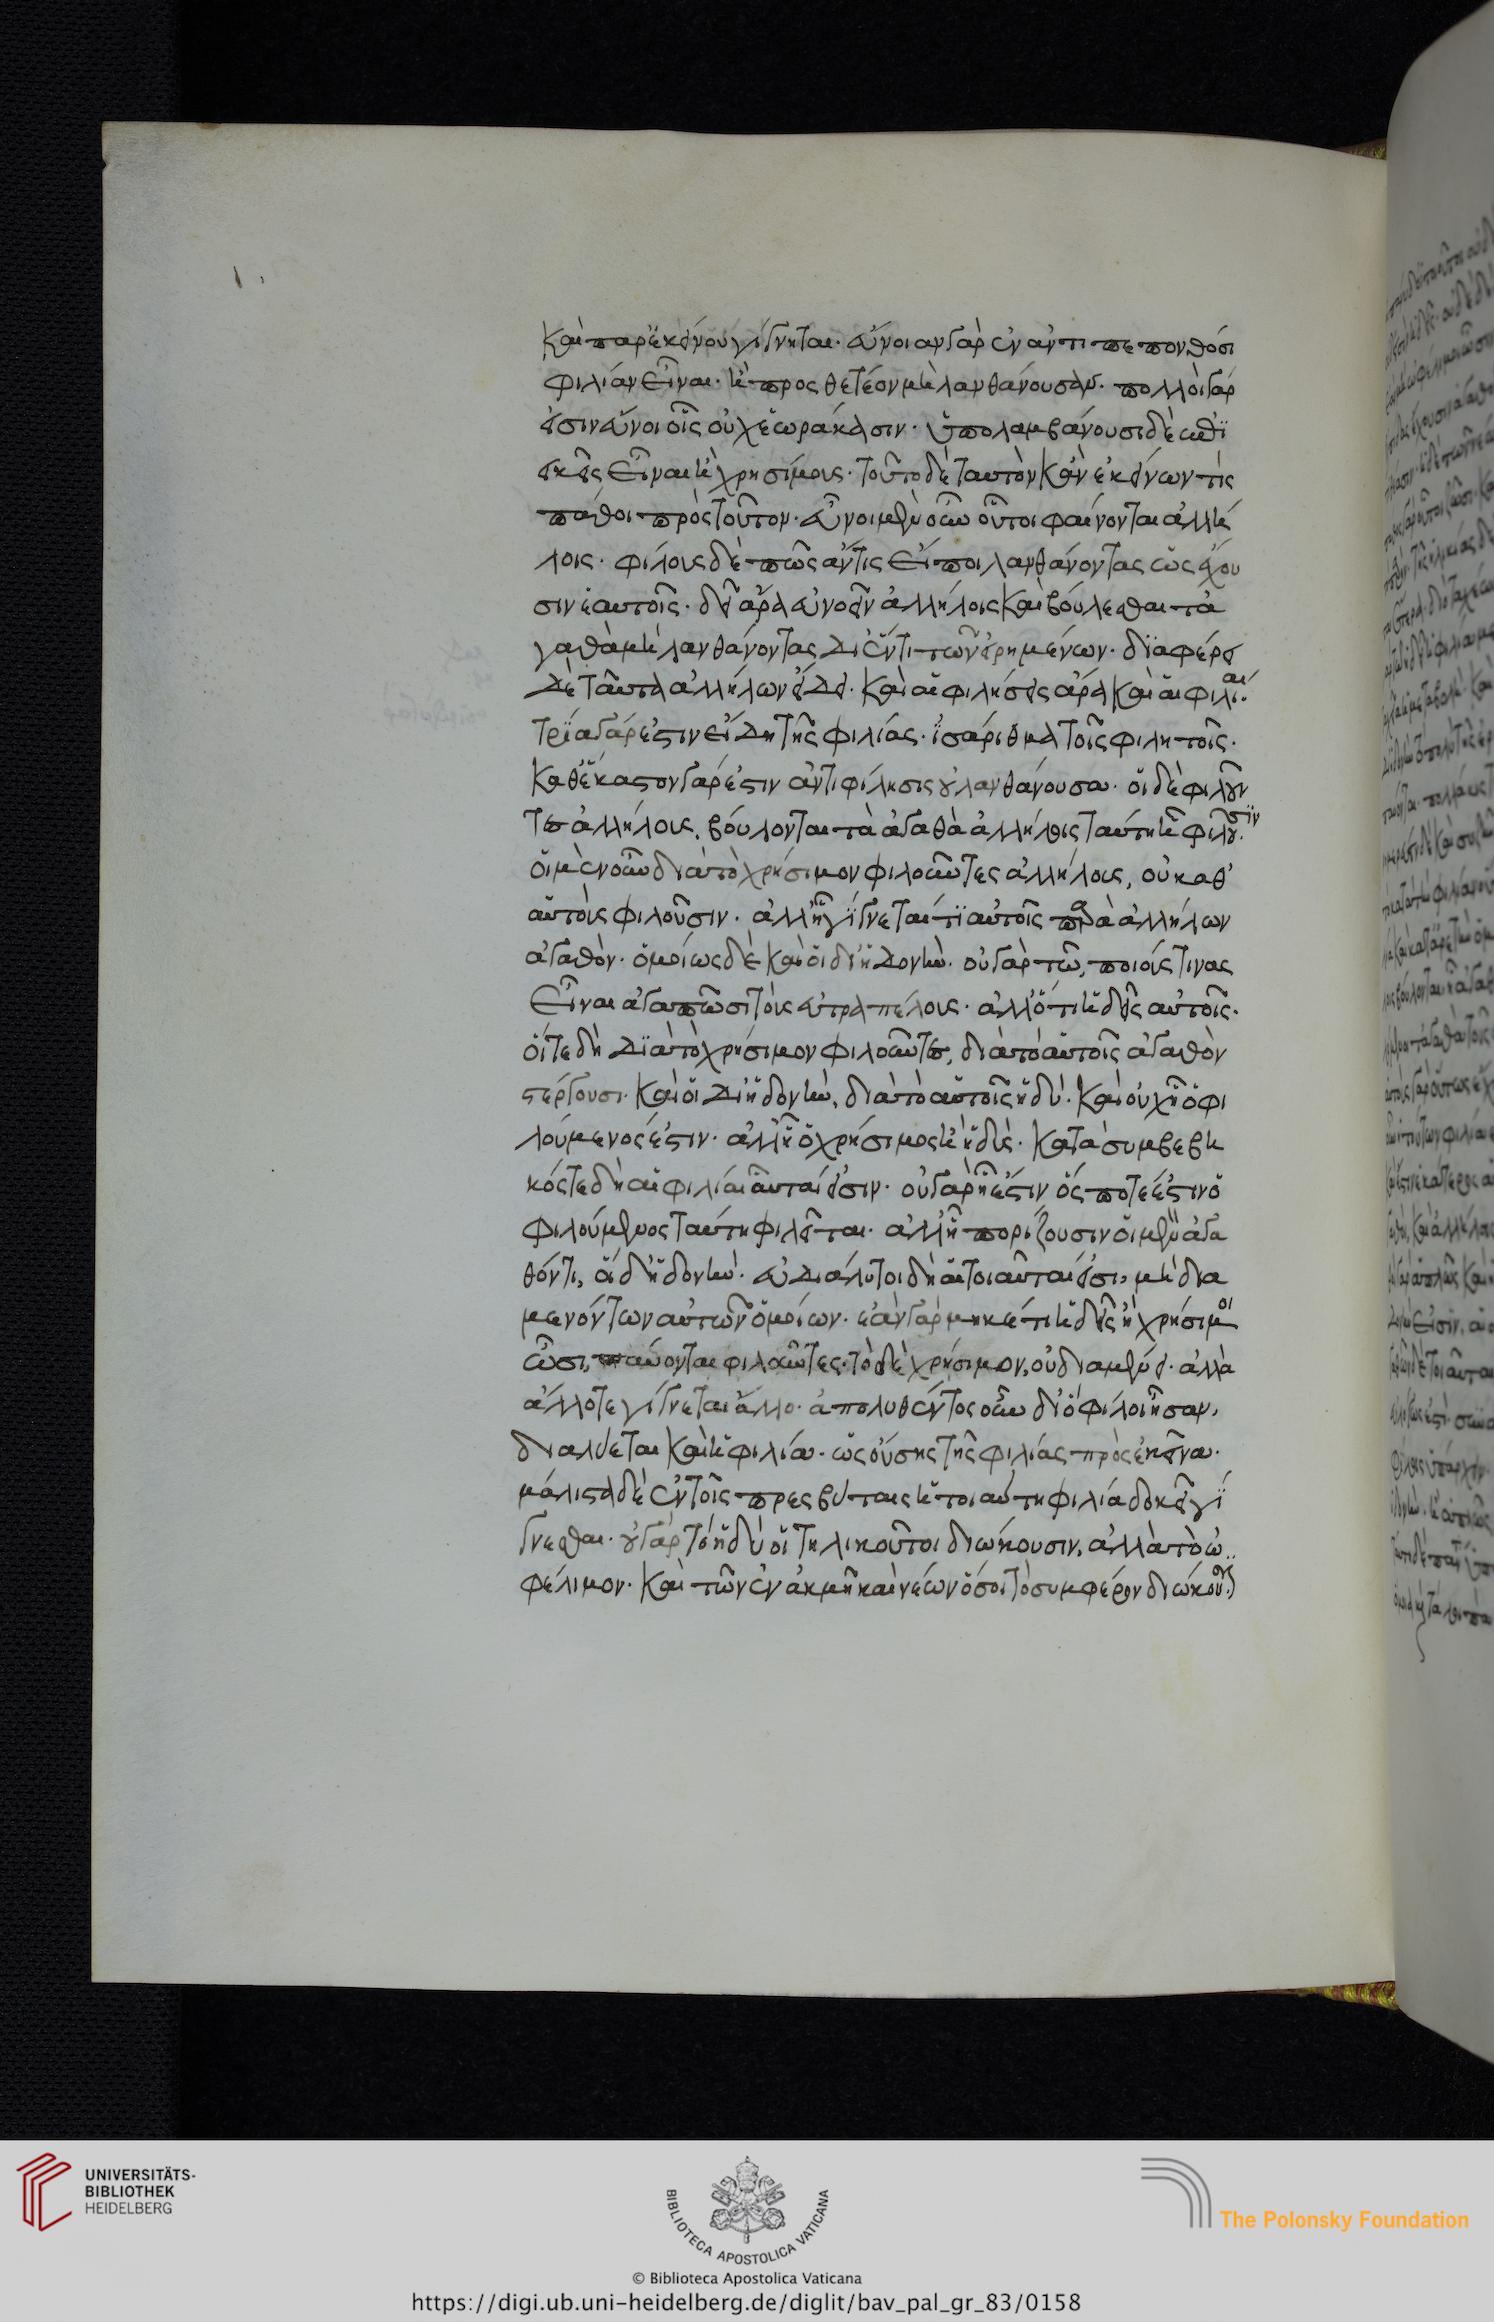 καὶ παρ' ἐκείνου γίγνηται· εὔνοιαν γὰρ ἐν ἀντιπεπονθόσι
φιλίαν εἶναι· ἢ προσθετέον μὴ λανθάνουσαν· πολλοὶ γάρ
εἰσιν εὖνοι οἷς οὐχ ἑωράκασιν· ὑπολαμβάνουσι δὲ ἐπι
εικεῖς εἶναι ἢ χρησίμους· τοῦτο δὲ ταυτὸν κἂν ἐκείνων τὶς
πάθοι πρὸς τοῦτον· εὖνοι μὲν οὖν οὗτοι φαίνονται ἀλλή
λοις· φίλους δὲ πῶς ἄν τις εἴποι λανθάνοντας ὡς ἔχου
σιν ἑαυτοῖς· δεῖ ἄρα εὐνοεῖν ἀλλήλοις καὶ βούλεσθαι τἀ
γαθὰ μὴ λανθάνοντας δι' ἕν τι τῶν εἰρημένων· διαφέρει
δὲ ταῦτα ἀλλήλων εἴδει· καὶ αἱ φιλήσεις ἄρα καὶ αἱ φιλίαι·
τρία γάρ ἐστιν εἴδη τῆς φιλίας· ἰσάριθμα τοῖς φιλητοῖς·
καθ' ἕκαστον γάρ ἐστιν ἀντιφίλησις οὐ λανθάνουσα· οἱ δὲ φιλοῦν
τες ἀλλήλους, βούλονται τὰ ἀγαθὰ ἀλλήλοις ταύτη ἧ φιλοῦσιν·
οἱ μὲν οὖν διὰ τὸ χρήσιμον φιλοῦντες ἀλλήλους, οὐ καθ'
αὑτοὺς φιλοῦσιν· ἀλλ' ἧ γίγνεταί τι αὐτοῖς παρὰ ἀλλήλων
ἀγαθόν· ὁμοίως δὲ καὶ οἱ δι' ἡδονήν· οὐ γὰρ τῶ, ποιούς τινας
εἶναι ἀγαπῶσι τοὺς εὐτραπέλους· ἀλλ' ὅτι ἡδεῖς αὐτοῖς·
οἵ τε δὴ διὰ τὸ χρήσιμον φιλοῦντες, διὰ τὸ αὑτοῖς ἀγαθὸν
στέργουσι· καὶ οἱ δι' ἡδονήν, διὰ τὸ αὑτοῖς ἡδύ· καὶ οὐχ ἧ ὁ φι
λούμενος ἐστιν· ἀλλ' ἧ ὁ χρήσιμος ἢ ἡδύς· κατὰ συμβεβη
κός τε δὴ αἱ φιλίαι αὗταί εἰσιν· οὐ γὰρ ἧ ἐστιν ὅς ποτε ἐστιν ὁ
φιλούμενος ταύτη φιλεῖται· ἀλλ' ἧ πορίζουσιν οἱ μὲν ἀγα
θόν τι, οἱ δ' ἡδονήν· εὐδιάλυτοι δὴ αἱ τοιαῦται εἰσι, μὴ δια
μενόντων αὐτῶν ὁμοίων· ἐὰν γὰρ μηκέτι ἡδεῖς ἢ χρήσιμοι
ὦσι, παύονται φιλοῦντες· τὸ δὲ χρήσιμον, οὐ διαμένει· ἀλλὰ
ἄλλοτε γίγνεται ἄλλο· ἀπολυθέντος οὖν δι' ὃ φίλοι ἦσαν,
διαλύεται καὶ ἡ φιλία· ὡς οὔσης τῆς φιλίας πρὸς ἐκεῖνα·
μάλιστα δὲ ἐν τοῖς πρεσβύταις ἡ τοιαύτη φιλία δοκεῖ γί
γνεσθαι· οὐ γὰρ τὸ ἡδὺ οἱ τηλικοῦτοι διώκουσιν, ἀλλὰ τὸ ὠ
φέλιμον· καὶ τῶν ἐν ἀκμῆ καὶ νέων ὅσοι τὸ συμφέρον διώκουσι
UNIVERSITÄTS-
BIBLIOTHEK
HEIDELBERG
BIBLIOTECA APOSTOLICA VATICANA
The Polonsky Foundation
© Biblioteca Apostolica Vaticana
https://digi.ub.uni-heidelberg.de/diglit/bav_pal_gr_83/0158